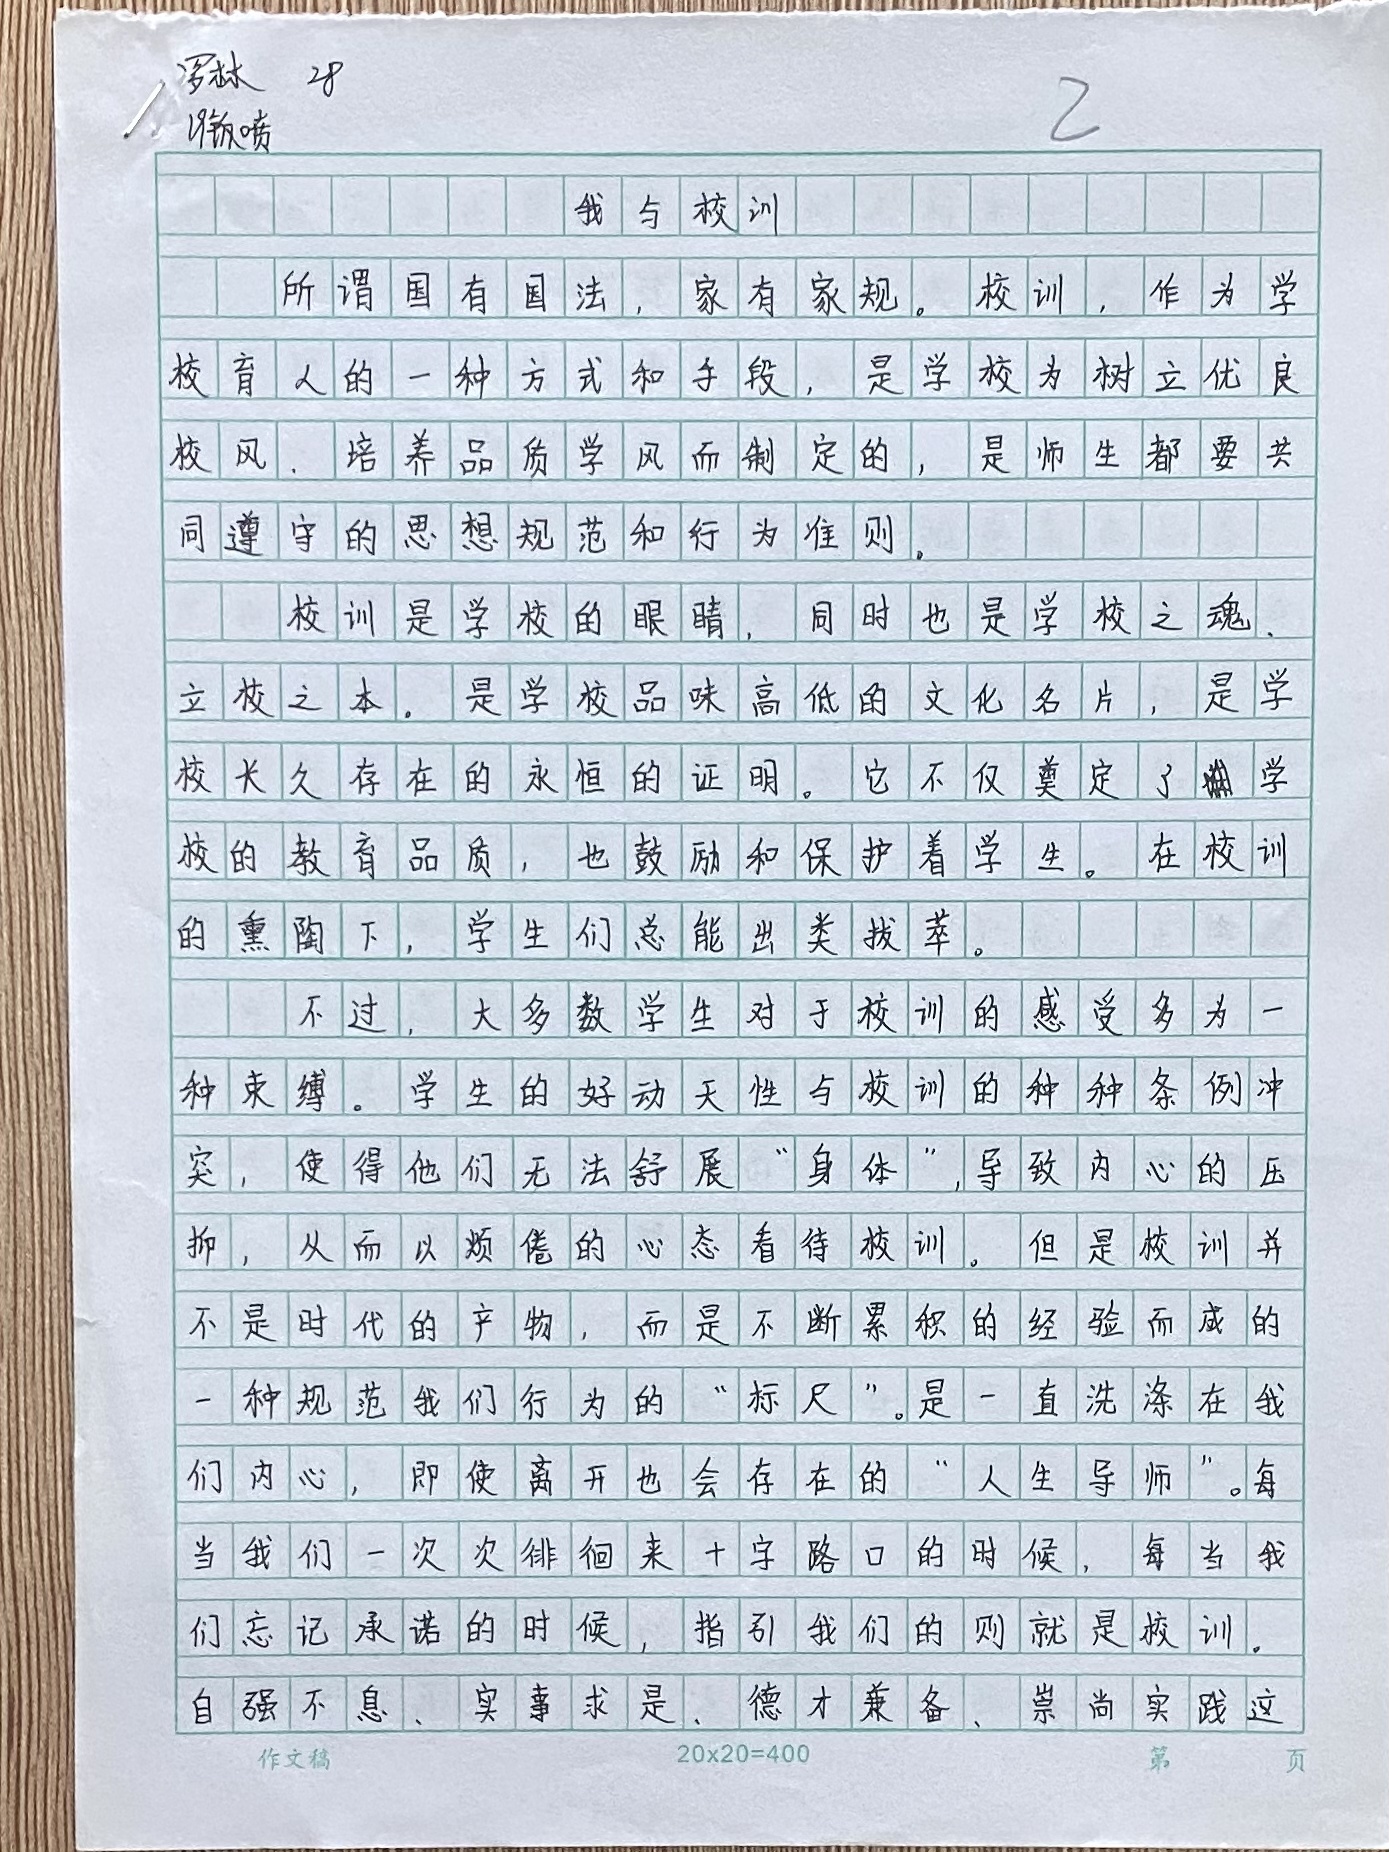 28
2
我与校训
所谓国有国法，家有家规。校训，作为学
校育人的一种方式和手段，是学校为树立优良
校风、培养品质学风而制定的，是师生都要共
同遵守的思想规范和行为准则。
校训是学校的眼睛，同时也是学校之魂、
立校之本。是学校品味高低的文化名片，是学
校长久存在的永恒的证明。它不仅奠定了学
校的教育品质，也鼓励和保护着学生。在校训
的熏陶下，学生们总能出类拔萃。
不过，大多数学生对于校训的感受多为一
种束缚。学生的好动天性与校训的种种条例冲
突，使得他们无法舒展“身体”，导致内心的压
抑，从而以烦倦的心态看待校训。但是校训并
不是时代的产物，而是不断累积的经验而成的
一种规范我们行为的“标尺”。是一直洗涤在我
们内心，即使离开也会存在的“人生导师”。每
当我们一次次徘徊来十字路口的时候，每当我
们忘记承诺的时候，指引我们的则就是校训。
自强不息、实事求是、德才兼备、崇尚实践这
作文稿 20x20=400 第 页